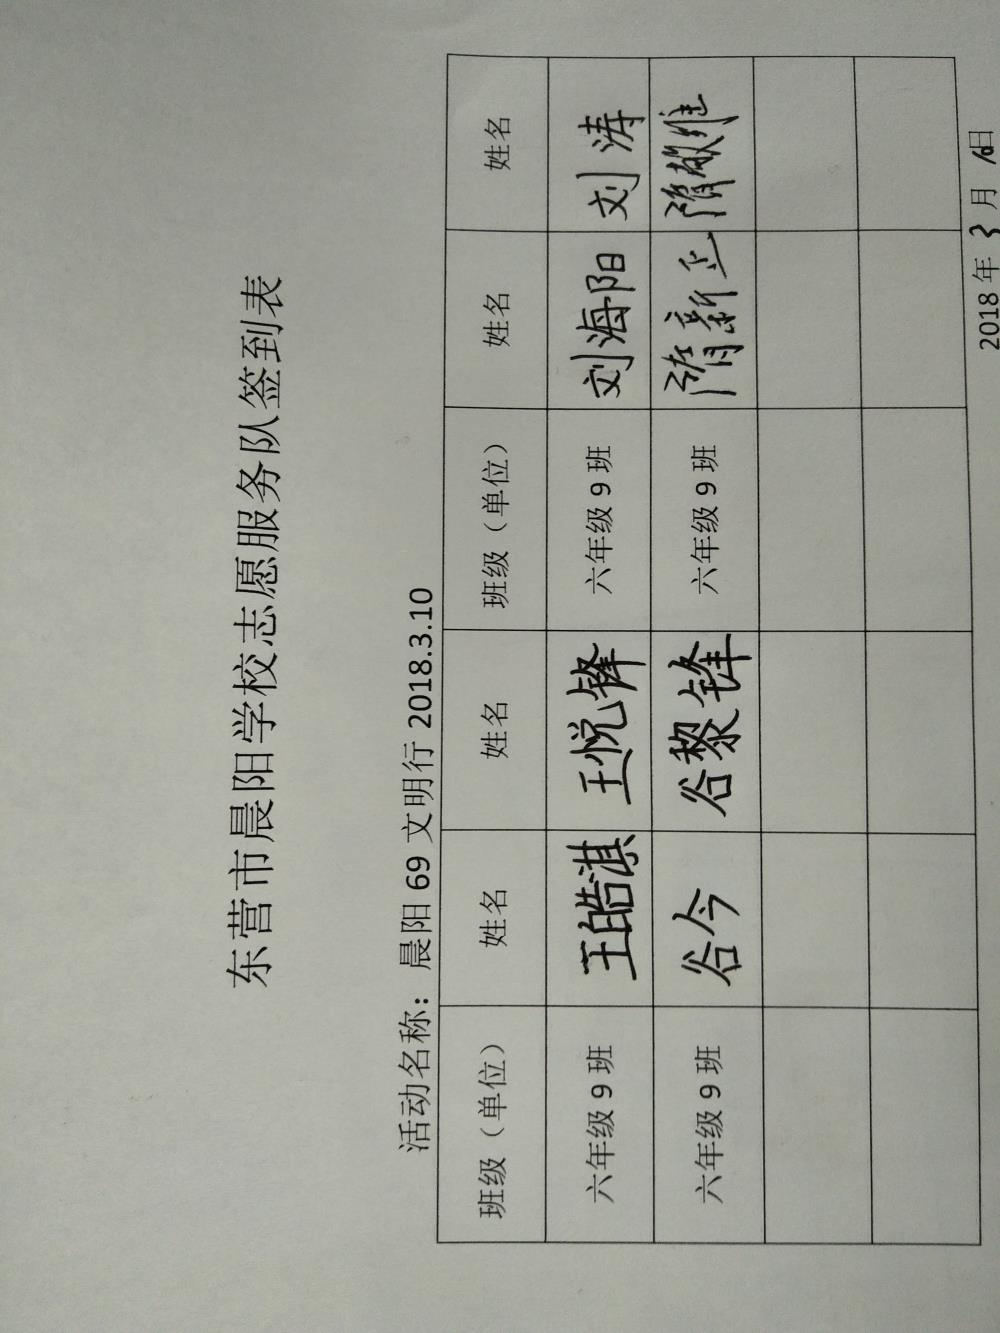 东营市晨阳学校志愿服务队签到表
活动名称：晨阳 69 文明行 2018.3.10
班级（单位） 姓名 姓名 班级（单位） 姓名 姓名
六年级 9 班 王皓淇 王悦锋 六年级 9 班 刘海阳 刘涛
六年级 9 班 谷今 谷黎锋 六年级 9 班 隋新正 隋敬维
2018 年 3 月 10 日